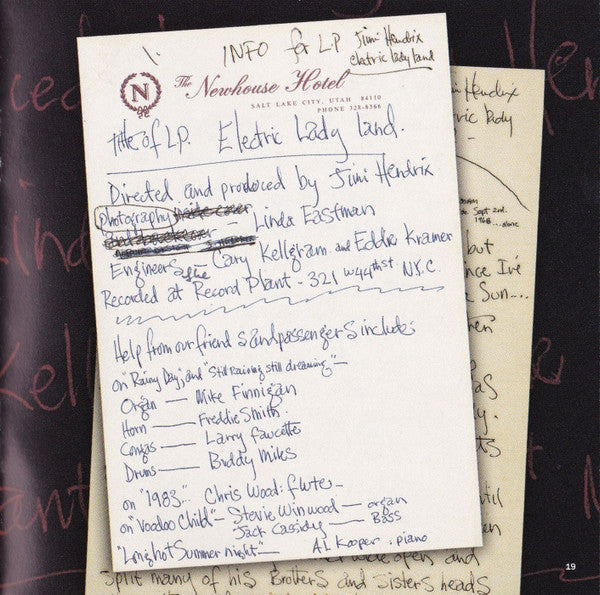 INFO for LP Jimi Hendrix
electric lady land
The Newhouse Hotel
SALT LAKE CITY, UTAH 84110
PHONE 328-8366
title of L.P. Electric Lady Land.
Directed and produced by Jimi Hendrix
photography
— Linda Eastman
Engineers — Gary Kellgram and Eddie Kramer
Recorded at Record Plant - 321 w 44th st N.Y.C.
Help from our friends and passengers include:
on "Rainy Day", and "Still Raining still dreaming" —
Organ — Mike Finnigan
Horn — Freddie Smith.
Congas — Larry faucette
Drums — Buddy Miles
on "1983".. Chris Wood: flute —
on "Voodoo Child" — Stevie Winwood — organ
Jack Cassidy — Bass
"Long hot Summer night" — AL Kooper : piano
Jimi Hendrix
Sept 2nd.
1968
but
Sun....
open and
Split many of his Brothers and Sisters heads
19